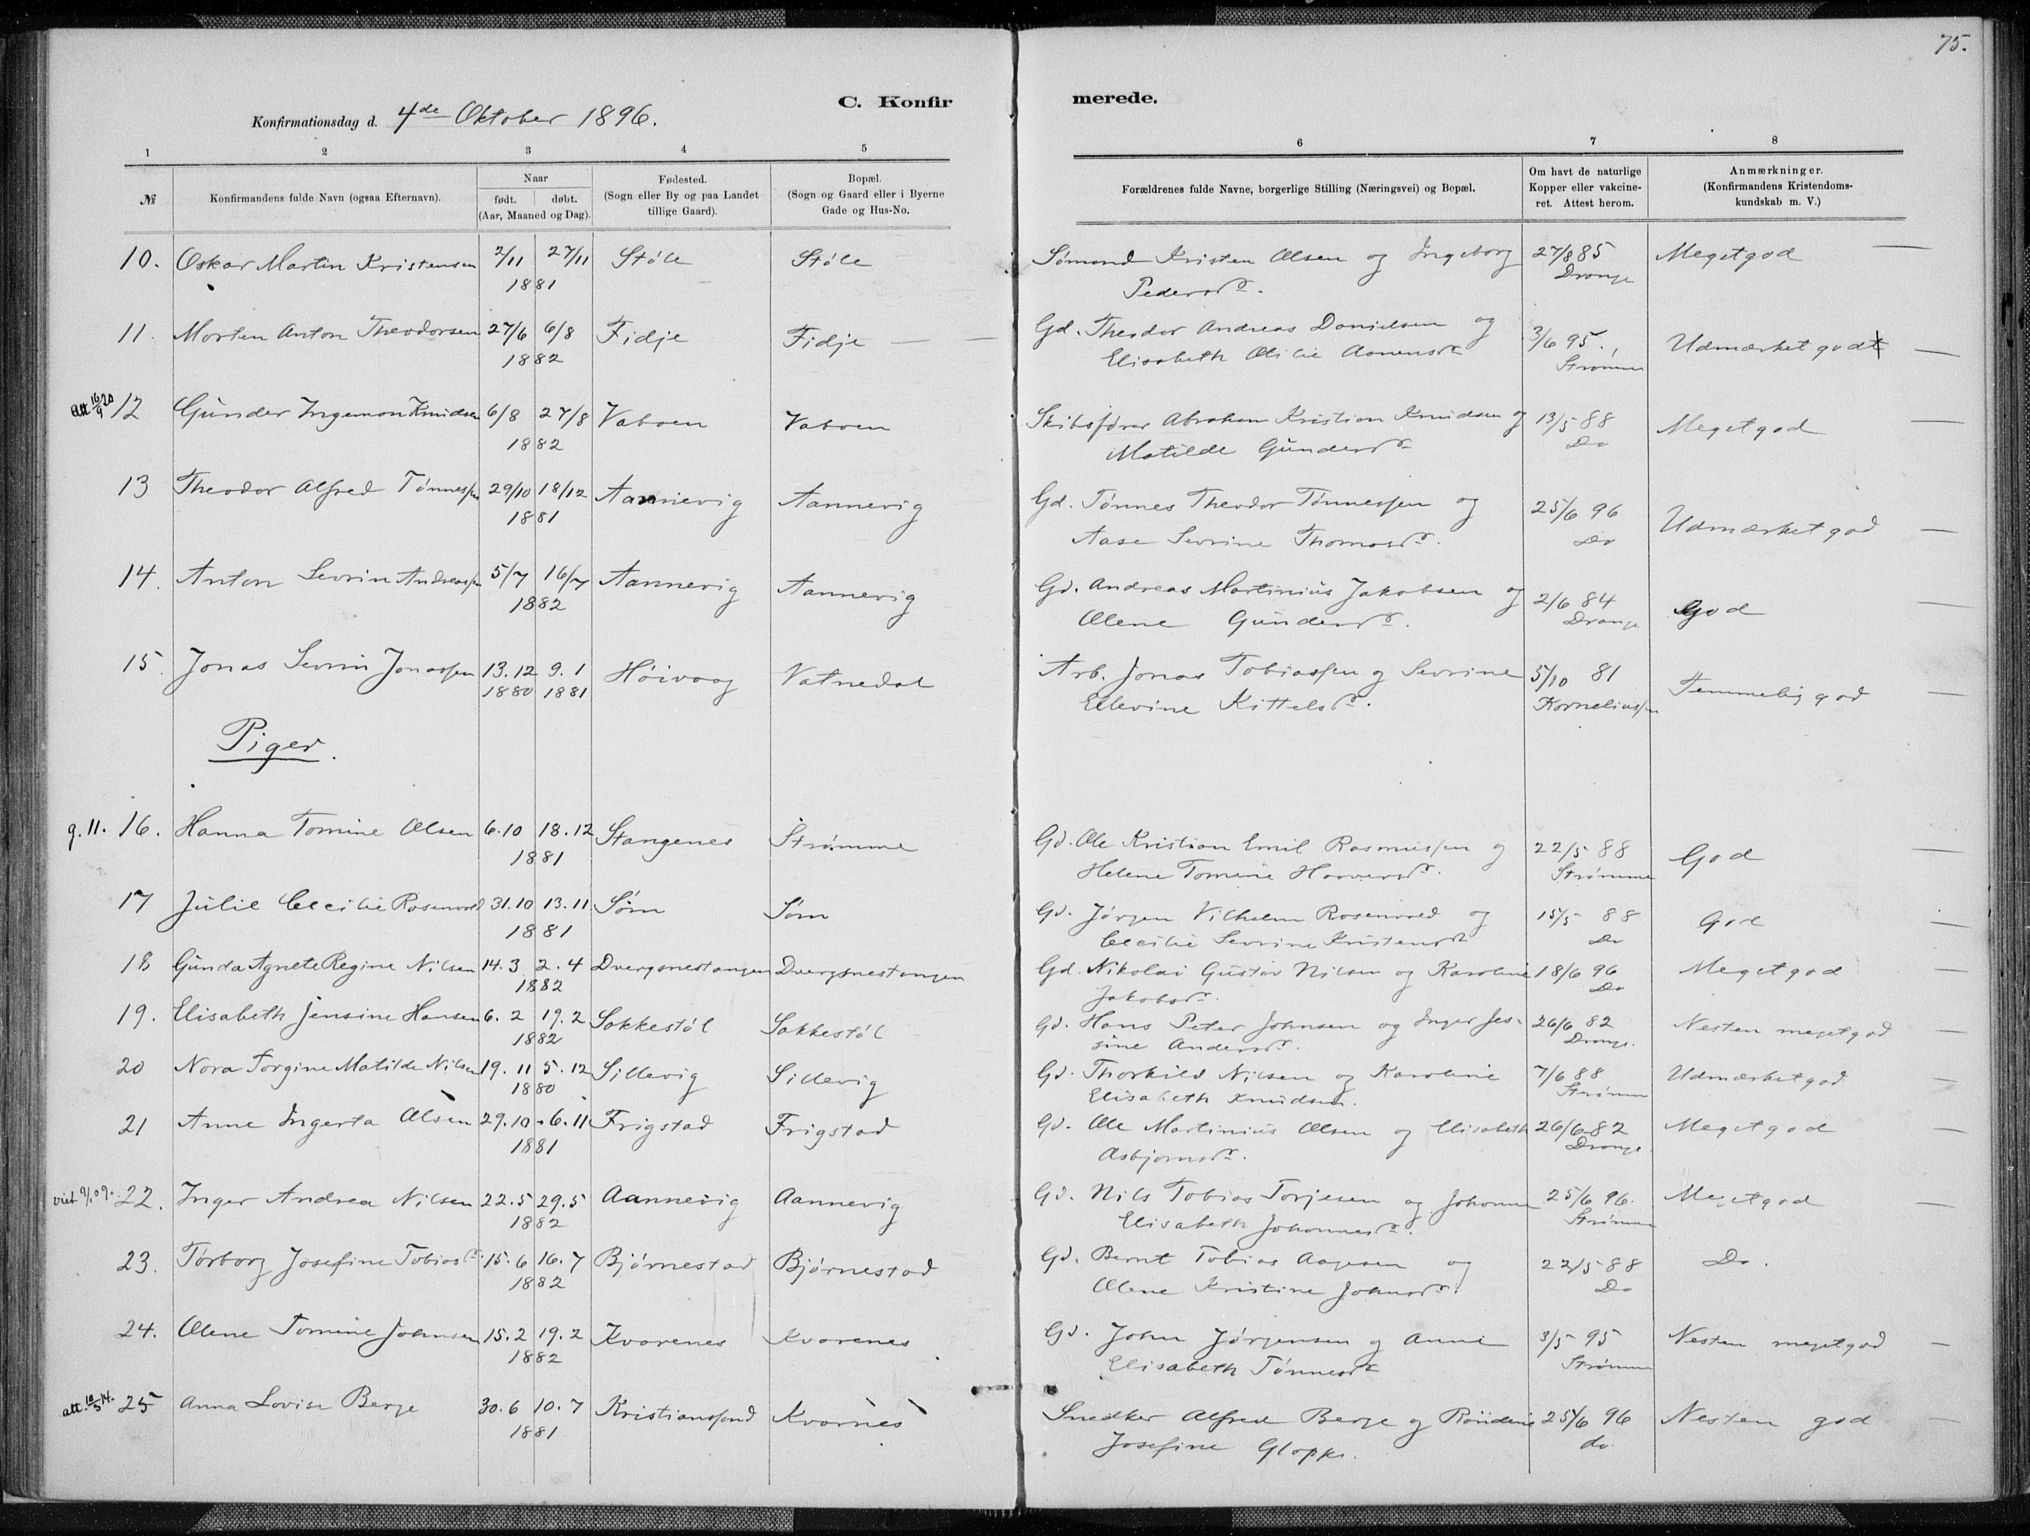 75.
C. Konfirmerede.
Konfirmationsdag d. 4de Oktober 1896.
1 2 3 4 5 6 7 8
№ Konfirmandens fulde Navn (ogsaa Efternavn). Naar født. døbt. (Aar, Maaned og Dag). Fødested. (Sogn eller By og paa Landet tillige Gaard). Bopæl. (Sogn og Gaard eller i Byerne Gade og Hus-No. Forældrenes fulde Navne, borgerlige Stilling (Næringsvei) og Bopæl. Om havt de naturlige Kopper eller vakcineret. Attest herom. Anmærkninger. (Konfirmandens Kristendomskundskab m. V.)
10. Oskar Martin Kristensen 2/11 27/11 Støle Støle Sømand Kristen Olsen og Ingeborg 27/8 85 Megetgod
1881 Pedersdr. Drange
11. Morten Anton Theodorsen 27/6 6/8 Fidje Fidje Gd. Theodor Andreas Danielsen og 3/6 95. Udmærket godt
1882 Elisabeth Otilie Aanensdr Strømme
att 16/9 20 12 Gunder Ingeman Knudsen 6/8 27/8 Vaboen Vaboen Skibsfører Abraham Kristian Knudsen og 13/5 88 Megetgod
1882 Matilde Gundersdr Do
13 Theodor Alfred Tønnessen 29/10 18/12 Aannevig Aannevig Gd. Tønnes Theodor Tønnessen og 25/6 96 Udmærket god
1881 Aase Sevrine Thomasdr. Do
14. Anton Sevrin Andreassen 5/7 16/7 Aannevig Aannevig Gd. Andreas Martinius Jakobsen og 2/6 84 God
1882 Olene Gundersdr. Drange
15. Jonas Sevrin Jonassen 13.12 9.1 Høivaag Vatnedal Arb. Jonas Tobiassen og Sevrine 5/10 81 Temmelig god
1880 1881 Ellevine Kittelsdr. Korneliussen
Piger.
g. 11. 16. Hanna Tomine Olsen 6.10 18.12 Stangenes Strømme Gd. Ole Kristian Emil Rasmussen og 22/5 88 God
1881 Helene Tomine Haaversdr. Strømme
17 Julie Cecilie Rosenvold 31.10 13.11 Søm Søm Gd. Jørgen Vilhelm Rosenvold og 15/5 88 God
1881 Cecilie Sevrine Kristensdr Do
18 Gunda Agnete Regine Nilsen 14.3 2.4 Dvergsnestangen Dvergsnestangen Gd. Nikolai Gustav Nilsen og Karoline 18/6 96 Megetgod
1882 Jakobsdr. Do
19. Elisabeth Jensine Hansen 6.2 19.2 Sakkestøl Sakkestøl Gd. Hans Peter Johnsen og Inger Jes- 26/6 82 Nesten megetgod
1882 sine Andersdr. Drange.
20 Nora Torgine Matilde Nilsen 19.11 5.12 Sillevig Sillevig Gd. Thorkild Nilsen og Karoline 7/6 88 Udmærketgod
1880 Elisabeth Knudsen. Strømme
21 Anne Ingerta Olsen 29.10 6.11 Frigstad Frigstad Gd. Ole Martinius Olsen og Elisabeth 26/6 82 Megetgod
1881 Asbjørnsdr. Drange.
viet 9/1 09. 22. Inger Andrea Nilsen 22.5 29.5 Aannevig Aannevig Gd. Nils Tobias Torjesen og Johanne 25/6 96. Megetgod
1882 Elisabeth Johannesdr. Strømme
23. Torborg Josefine Tobiasdr. 15.6 16.7 Bjørnestad Bjørnestad Gd. Bernt Tobias Aagesen og 22/5 88 Do.
1882 Olene Kristine Johnsdr. Do
24. Olene Tomine Johnsen 15.2 19.2 Kvarenes Kvarenes Gd. John Jørgensen og Anne 3/5 95 Nesten megetgod
1882 Elisabeth Tønnesdr Strømme
att. 10/5 14. 25 Anna Lovise Berge 30.6 10.7 Kristianssand Kvarnes Snedker Alfred Berge og 25/6 96 Nesten god
1881 Josefine do